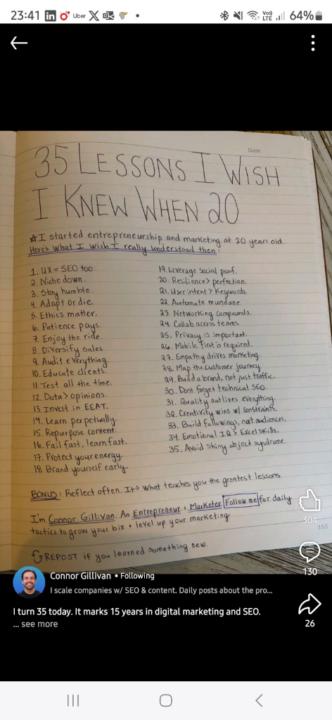 23:41
Uber
64%
35 LESSONS I WISH
I KNEW WHEN 20
I started entrepreneurship and marketing at 20 years old.
Here's what I wish I really understood then:
1. UX = SEO too.
2. Niche down.
3. Stay humble.
4. Adapt or die.
5. Ethics matter.
6. Patience pays.
7. Enjoy the ride.
8. Diversify sales.
9. Audit everything.
10. Educate clients.
11. Test all the time.
12. Data > opinions.
13. Invest in EEAT.
14. Learn perpetually.
15. Repurpose content.
16. Fail fast, learn fast.
17. Protect your energy.
18. Brand yourself early.
19. Leverage social proof.
20. Resilience > perfection.
21. User intent > Keywords.
22. Automate mundane.
23. Networking compounds.
24. Collab across teams.
25. Privacy is important.
26. Mobile first is required.
27. Empathy drives marketing.
28. Map the customer journey.
29. Build a brand, not just traffic.
30. Dont forget technical SEO.
31. Quality outlives everything.
32. Creativity wins w/ constraints.
33. Build followings, not audiences.
34. Emotional IQ > Excel skills.
35. Avoid shiny object syndrome.
BONUS: Reflect often. It's what teaches you the greatest lessons.
I'm Connor Gillivan. An Entrepreneur + Marketer. Follow me for daily
tactics to grow your biz + level up your marketing.
REPOST if you learned something new.
Connor Gillivan • Following
I scale companies w/ SEO & content. Daily posts about the pro...
130
I turn 35 today. It marks 15 years in digital marketing and SEO.
... see more
26